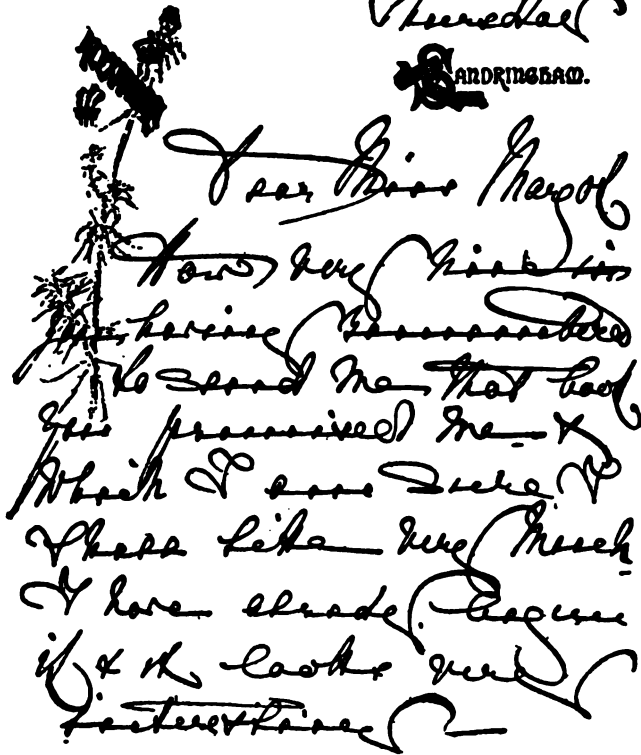 Thursday
SANDRINGHAM.
Dear Miss Margot
How very nice in
you having remembered
to send me that book
you promised me &
which I am sure I
shall like very much
I have already begun
it & it looks very
interesting —